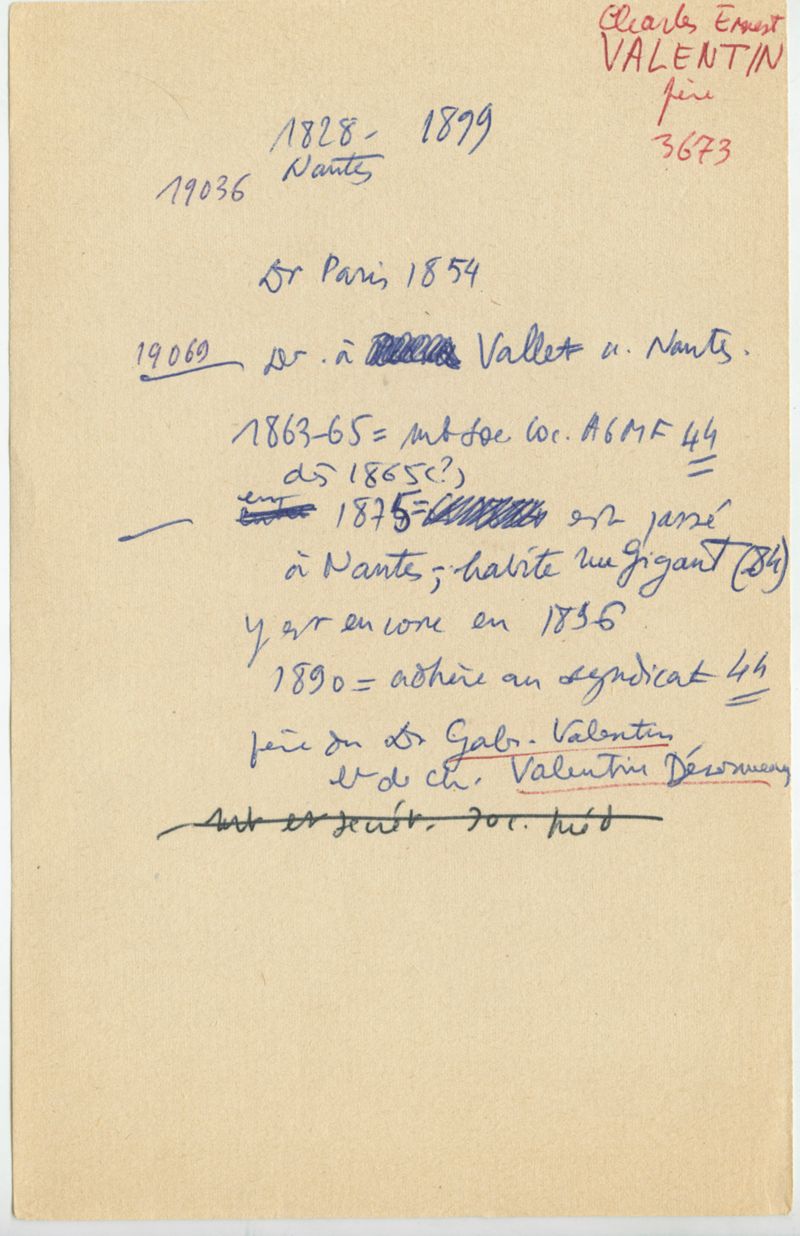 Charles Ernest
VALENTIN
père
3673
1828 - 1899
Nantes
19036
Dr Paris 1854
19069 Dr. à Vallet u. Nantes.
1863-65 = mb soc loc. AGMF 44
dès 1865 (?)
en 1875 = est passé
à Nantes, habite rue Gigant (84)
y est encore en 1896
1890 = adhère au syndicat 44
père du Dr Gabr. Valentin
et de Ch. Valentin Désormeaux
mb et secrét. Soc. méd